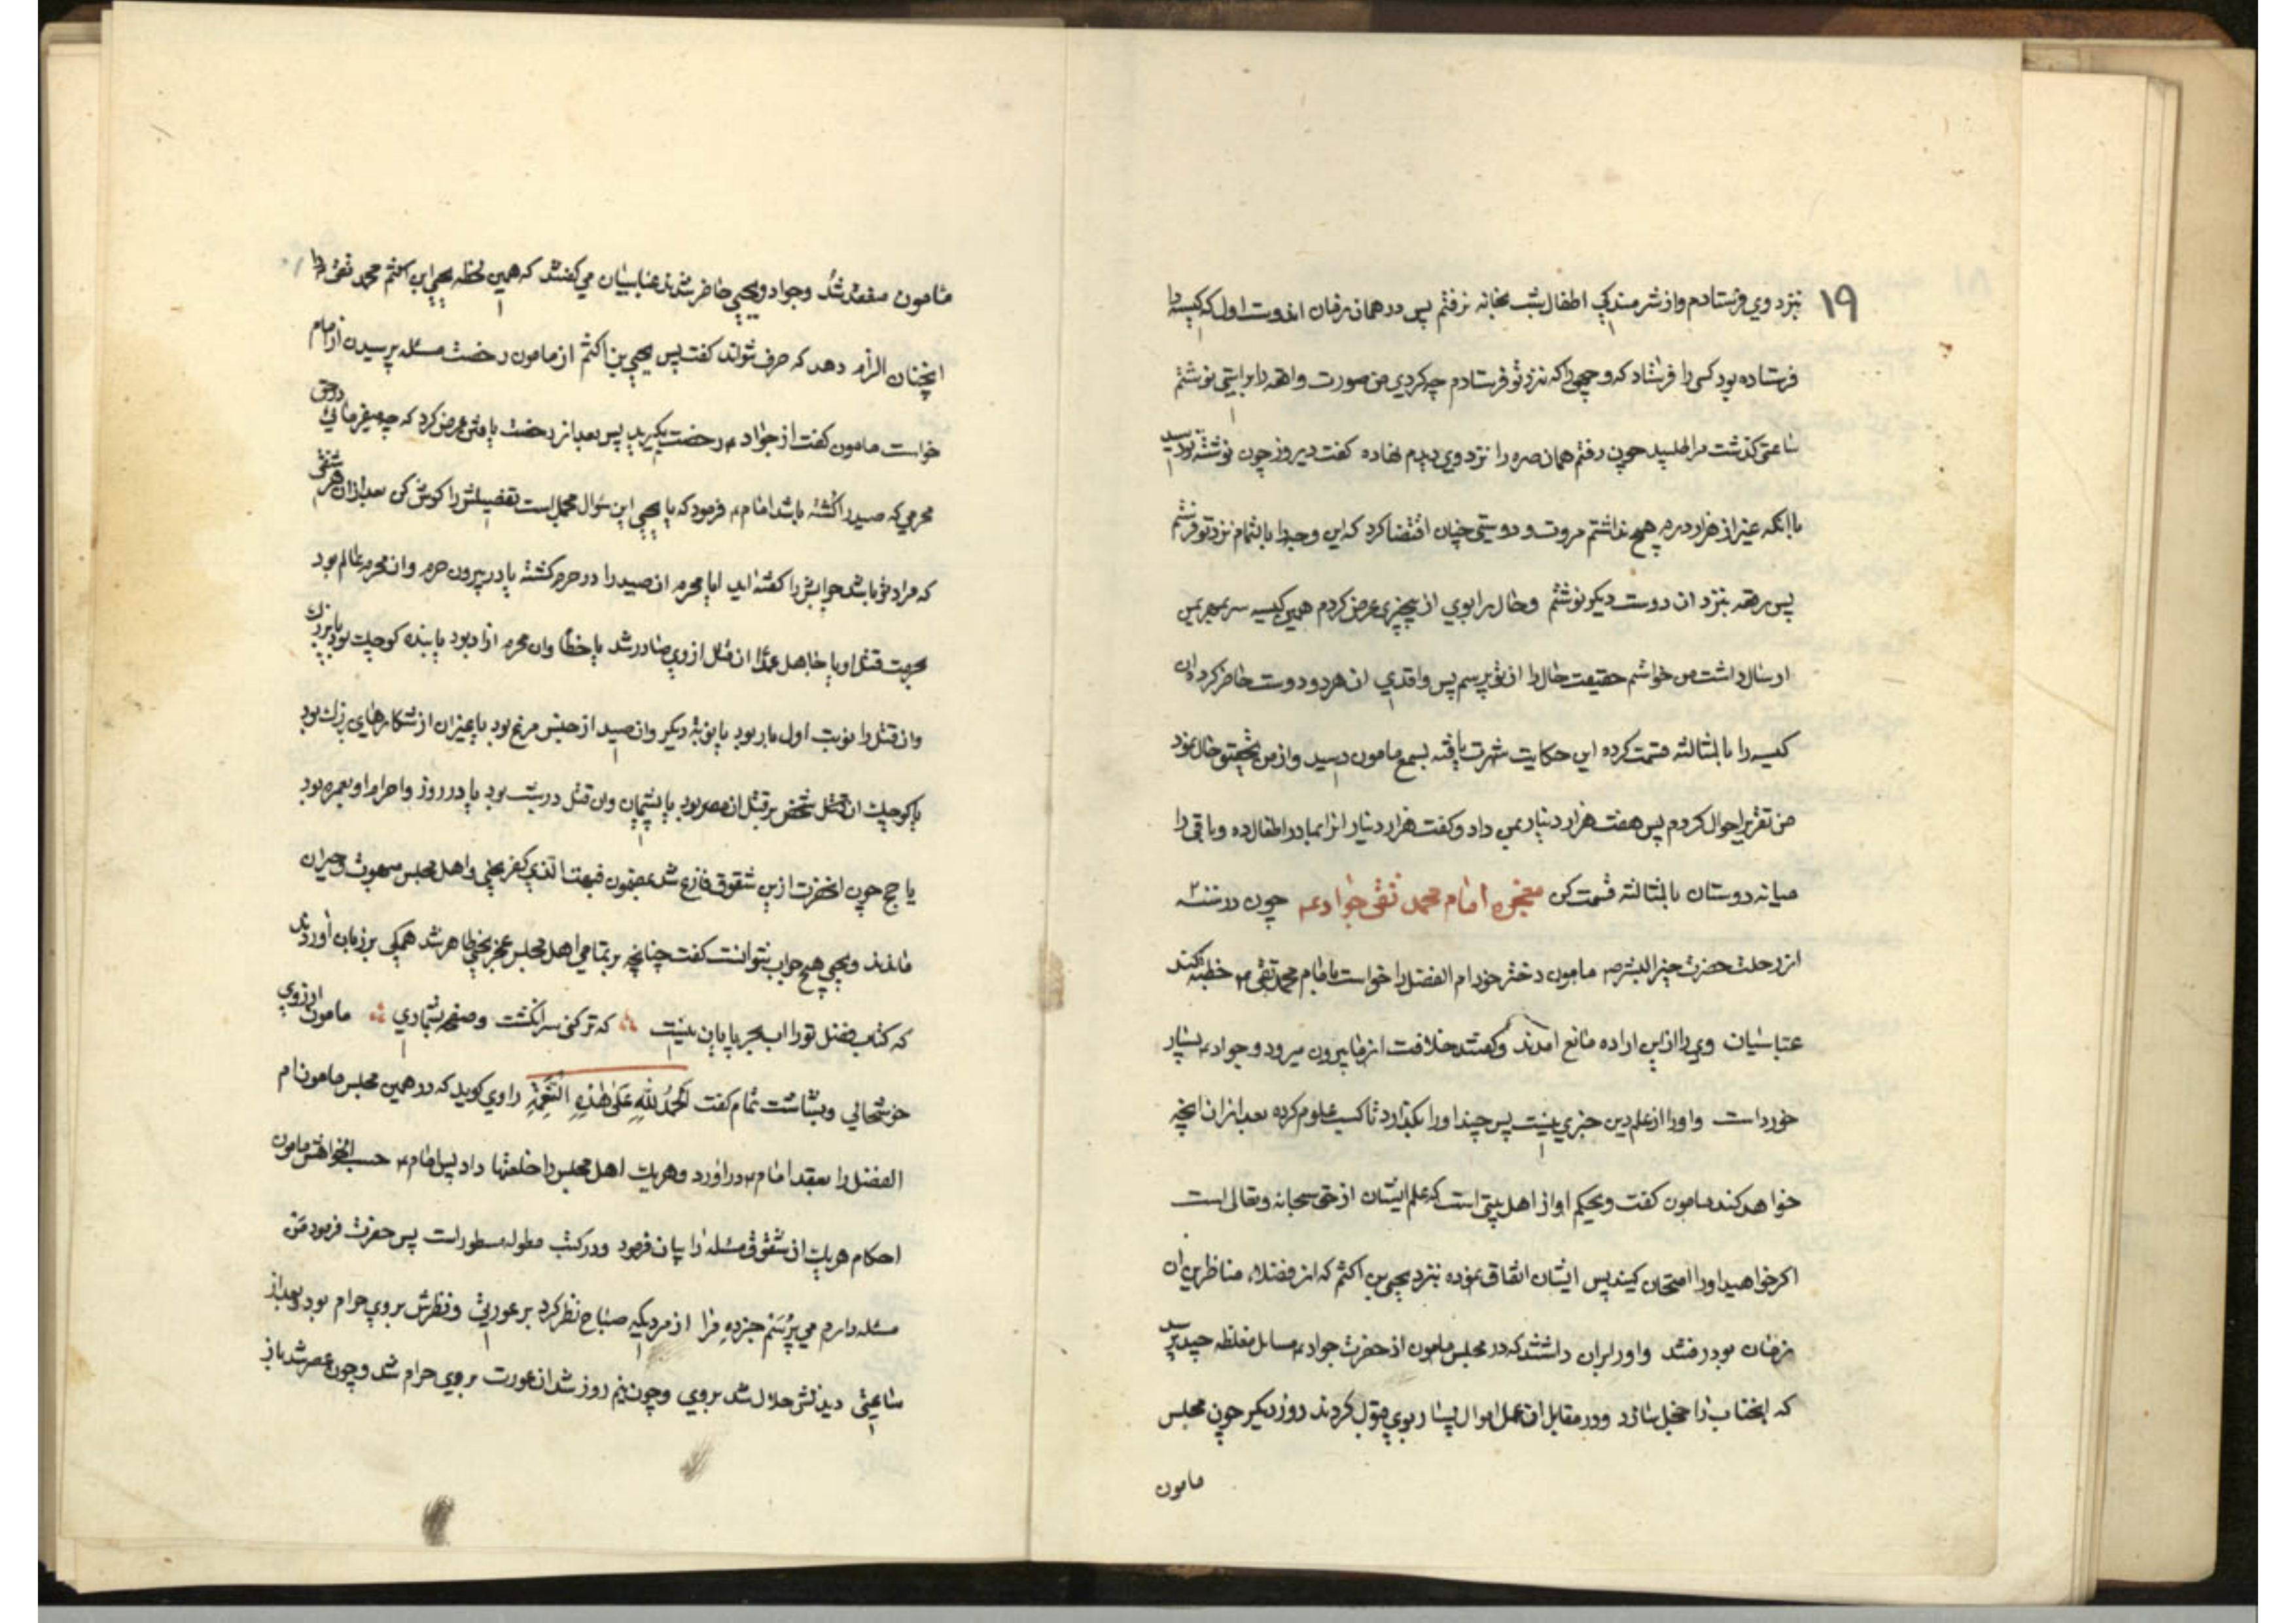 ۱۹
بنزد وی فرستادم واز شرمندکی اطفال شب بخانه نرفتم پس در همان زمان اندوست اول که کیسه را
فرستاده بود کسی را فرستاد که وجهی را که نزد تو فرستادم چه کردی من صورت واقعه را براستی نوشتم
ساعتی کذشت مرا طلبید چون رفتم همان صره را نزد وی دیدم نهاده کفت دیروز چون نوشته تو رسید
با انکه غیر از هزار درم هیچ نداشتم مروت و دوستی چنان اقتضا کرد که این وجه را بالتمام نزد تو فرستم
پس رقعه بنزد ان دوست دیکر نوشتم وحال را بوی از بیچیزی عرض کردم همین کیسه سر بمهر بمن
ارسال داشت من خواستم حقیقت حال را از تو پرسم پس واقدی ان هر دو دوست حاضر کرد ان
کیسه را بالمثالثه قسمت کرده این حکایت شهرت یافته بسمع مامون رسید واز من تحقیق حال نمود
من تقریر احوال کردم پس هفت هزار دینار بمن داد وکفت هزار دینار انرا بمادر اطفال ده وباقی را
میانه دوستان بالمثالثه قسمت کن معجزه امام محمد تقی جواد عم چون در سنه ۲
از رحلت حضرت خیر البشر ص مامون دختر خود ام الفضل را خواست با امام محمد تقی ع خطبه کند
عباسیان وی را از این اراده مانع امدند وکفتند خلافت از ما بیرون میرود وجواد ع بسیار
خورد است واو را از علم دین خبری نیست پس چند او را بکذارد تا کسب علوم کرده بعد از ان انچه
خواهد کند مامون کفت ویحکم او از اهل بیتی است که علم ایشان از حق سبحانه وتعالی است
اکر خواهید او را امتحان کنید پس ایشان اتفاق نموده بنزد یحیی بن اکثم که از فضلاء مناظرین ان
زمان بود رفتند واو را بران داشتند که در مجلس مامون از حضرت جواد ع مسایل مغلظه چند پرسد
که انجناب را خجل سازد ودر مقابل ان عمل اموال بسیار بوی قبول کردند روز دیکر چون مجلس
مامون
مامون منعقد شد وجواد ویحیی حاضر شدند عباسیان می کفتند که همین لحظه یحیی ابن اکثم محمد تقی را
انچنان الزام دهد که حرف نتواند کفت پس یحیی بن اکثم از مامون رخصت مسئله پرسیدن از امام
خواست مامون کفت از جواد ع رخصت بکیرید پس بعد از رخصت یافتن عرض کرد که چه میفرمائی در حق
محرمی که صید را کشته باشد امام ع فرمود که یا یحیی این سؤال مجمل است تفصیلش را کوش کن بعد از ان هر شقی
که مراد تو باشد جوابش را کفته اید ایا محرم ان صید را در حرم کشته یا در بیرون حرم وان محرم عالم بود
بحرمت قتل او یا جاهل عمدًا ان قتل از وی صادر شد یا خطأ وان محرم ازاد بود یا بنده کوچک بود یا بزرک
وان قتل را نوبت اول بار بود یا نوبة دیکر وان صید از جنس مرغ بود یا غیر ان از شکارهای بزرک بود
یا کوچک ان قتل شخص بر قتل ان مصر بود یا پشیمان وان قتل در شب بود یا در روز واحرام او بعمره بود
یا حج چون انحضرت ازین شقوق فارغ شد بمضمون فبهت الذی کفر یحیی واهل مجلس مبهوت وحیران
ماندند ویحیی هیچ جواب نتوانست کفت چنانچه بر تمامی اهل مجلس عجز یحیی ظاهر شد همکی بر زبان اوردند
که کتاب فضل تورا اب بحر پایان نیست که تر کنی سر انکشت وصفحه بشماری مامون از روی
خوشحالی وبشاشت تمام کفت اَلْحَمْدُ لِلّٰهِ عَلَی هٰذِهِ النِّعْمَةِ راوی کوید که در همین مجلس مامون ام
الفضل را بعقد امام ع در اورد وهریک اهل مجلس را خلعتها داد پس امام ع حسب الخواهش مامون
احکام هریک از شقوق مسئله را بیان فرمود ودر کتب مطوله مسطور است پس حضرت فرمود من
مسئله دارم می پُرسَم خبر ده مرا از مردیکه صباح نظر کرد بر عورتی ونظرش بروی حرام بود وبعد از
ساعتی دیدنش حلال شد بروی وچون نیم روز شد ان عورت بروی حرام شد وچون عصر شد باز